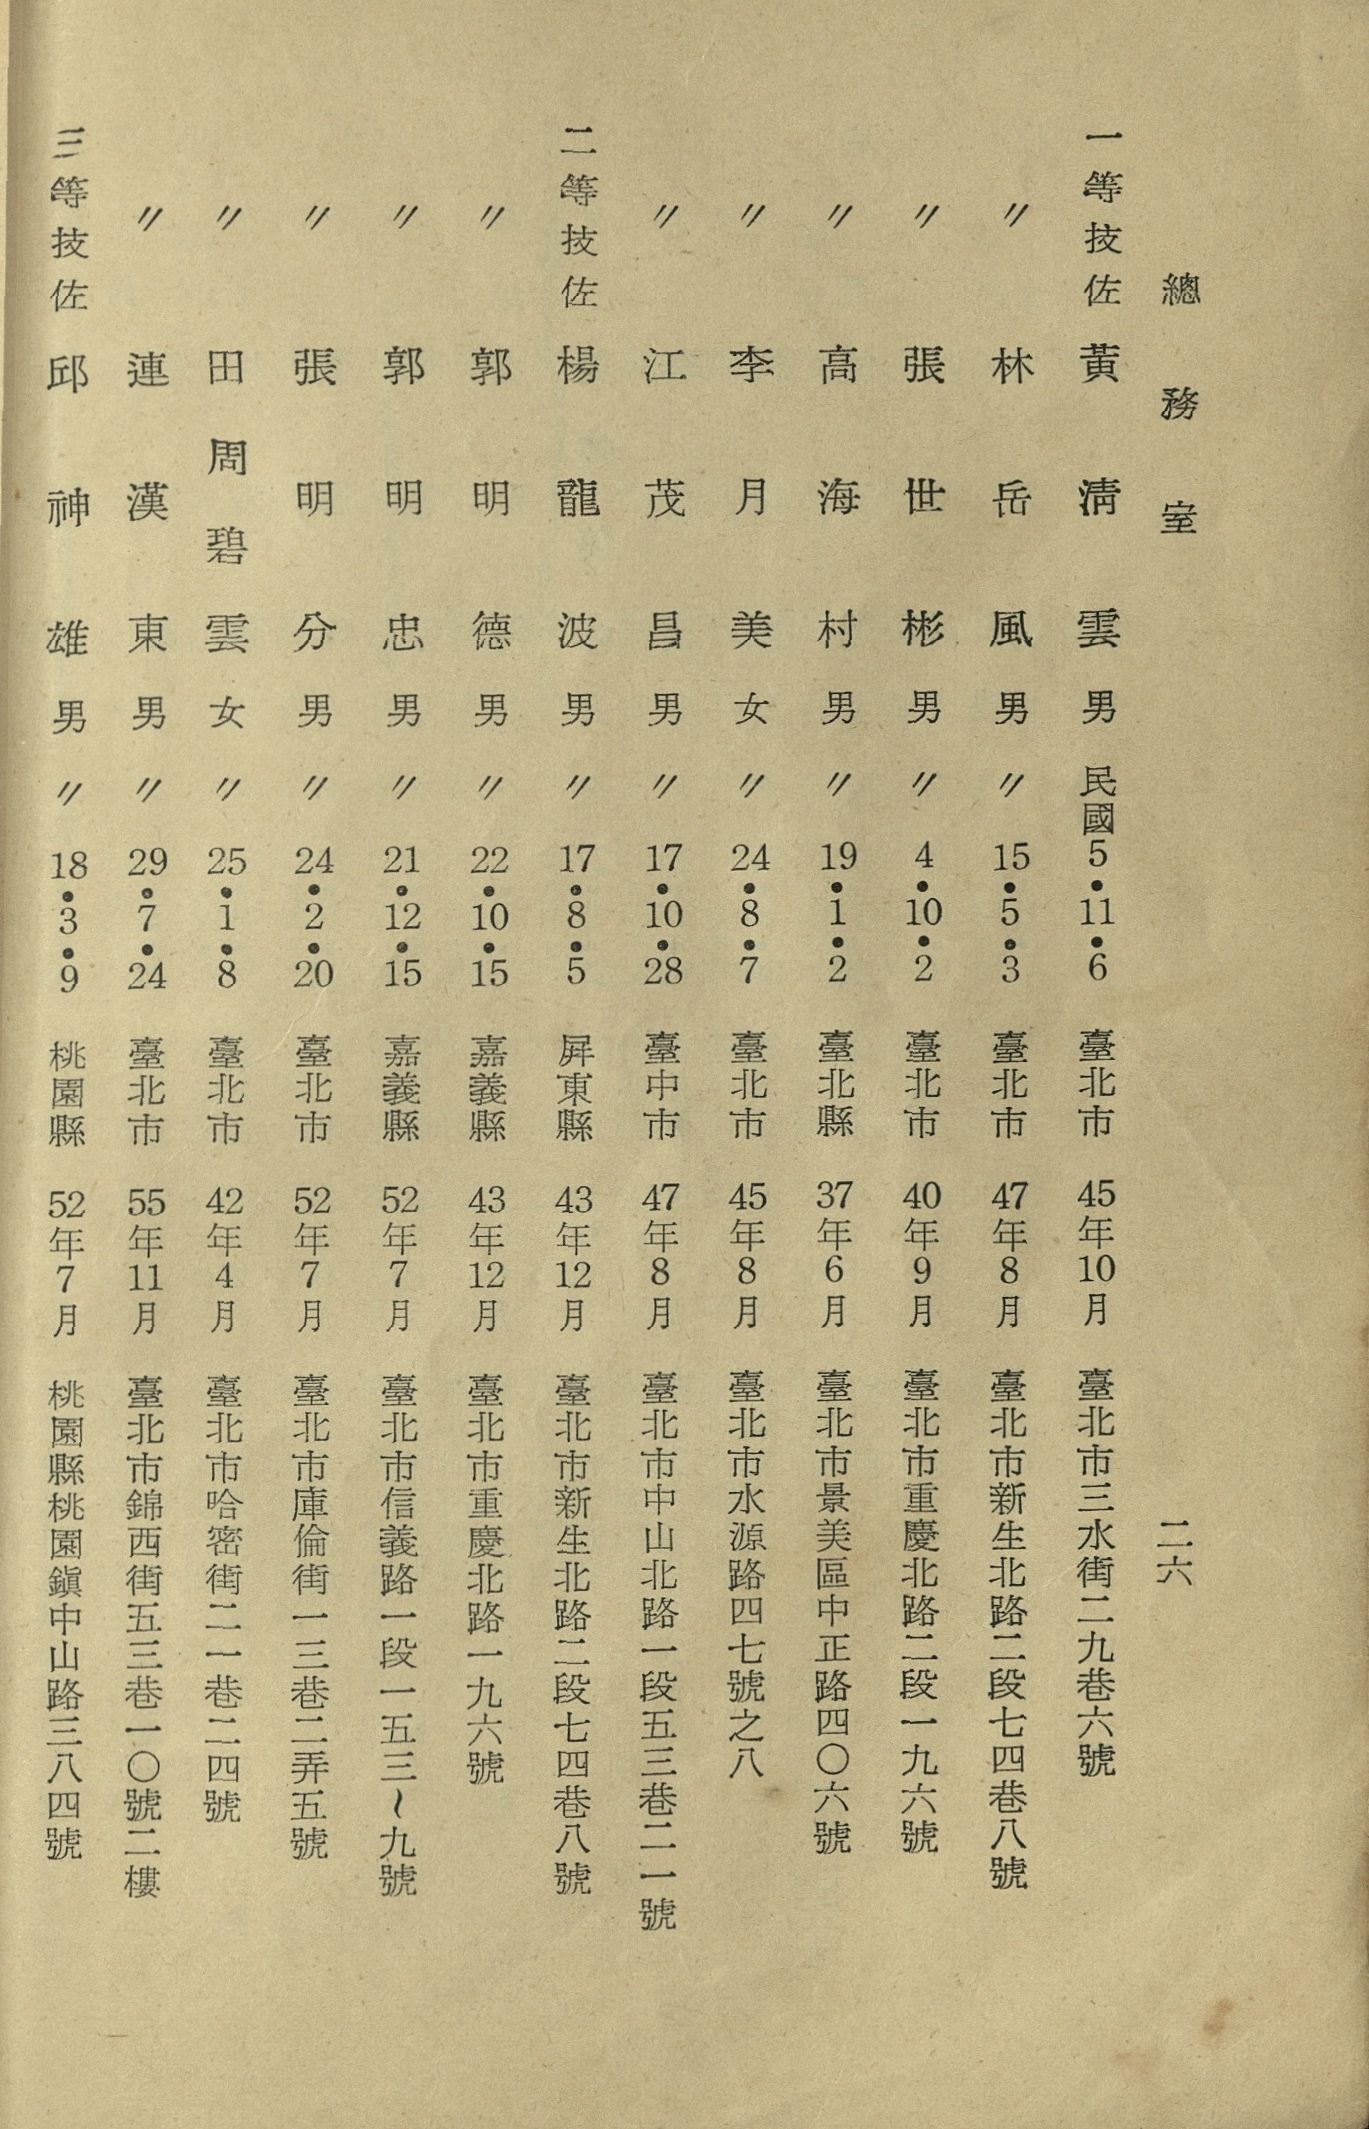 總務室
二六
一等技佐 黃淸雲 男 民國5•11•6 臺北市 45年10月 臺北市三水街二九巷六號
〃 林岳風 男 〃 15•5•3 臺北市 47年8月 臺北市新生北路二段七四巷八號
〃 張世彬 男 〃 4•10•2 臺北市 40年9月 臺北市重慶北路二段一九六號
〃 高海村 男 〃 19•1•2 臺北縣 37年6月 臺北市景美區中正路四〇六號
〃 李月美 女 〃 24•8•7 臺北市 45年8月 臺北市水源路四七號之八
〃 江茂昌 男 〃 17•10•28 臺中市 47年8月 臺北市中山北路一段五三巷二一號
二等技佐 楊龍波 男 〃 17•8•5 屏東縣 43年12月 臺北市新生北路二段七四巷八號
〃 郭明德 男 〃 22•10•15 嘉義縣 43年12月 臺北市重慶北路一九六號
〃 郭明忠 男 〃 21•12•15 嘉義縣 52年7月 臺北市信義路一段一五三~九號
〃 張明分 男 〃 24•2•20 臺北市 52年7月 臺北市庫倫街一三巷二弄五號
〃 田周碧雲 女 〃 25•1•8 臺北市 42年4月 臺北市哈密街二一巷二四號
〃 連漢東 男 〃 29•7•24 臺北市 55年11月 臺北市錦西街五三巷一〇號二樓
三等技佐 邱神雄 男 〃 18•3•9 桃園縣 52年7月 桃園縣桃園鎭中山路三八四號